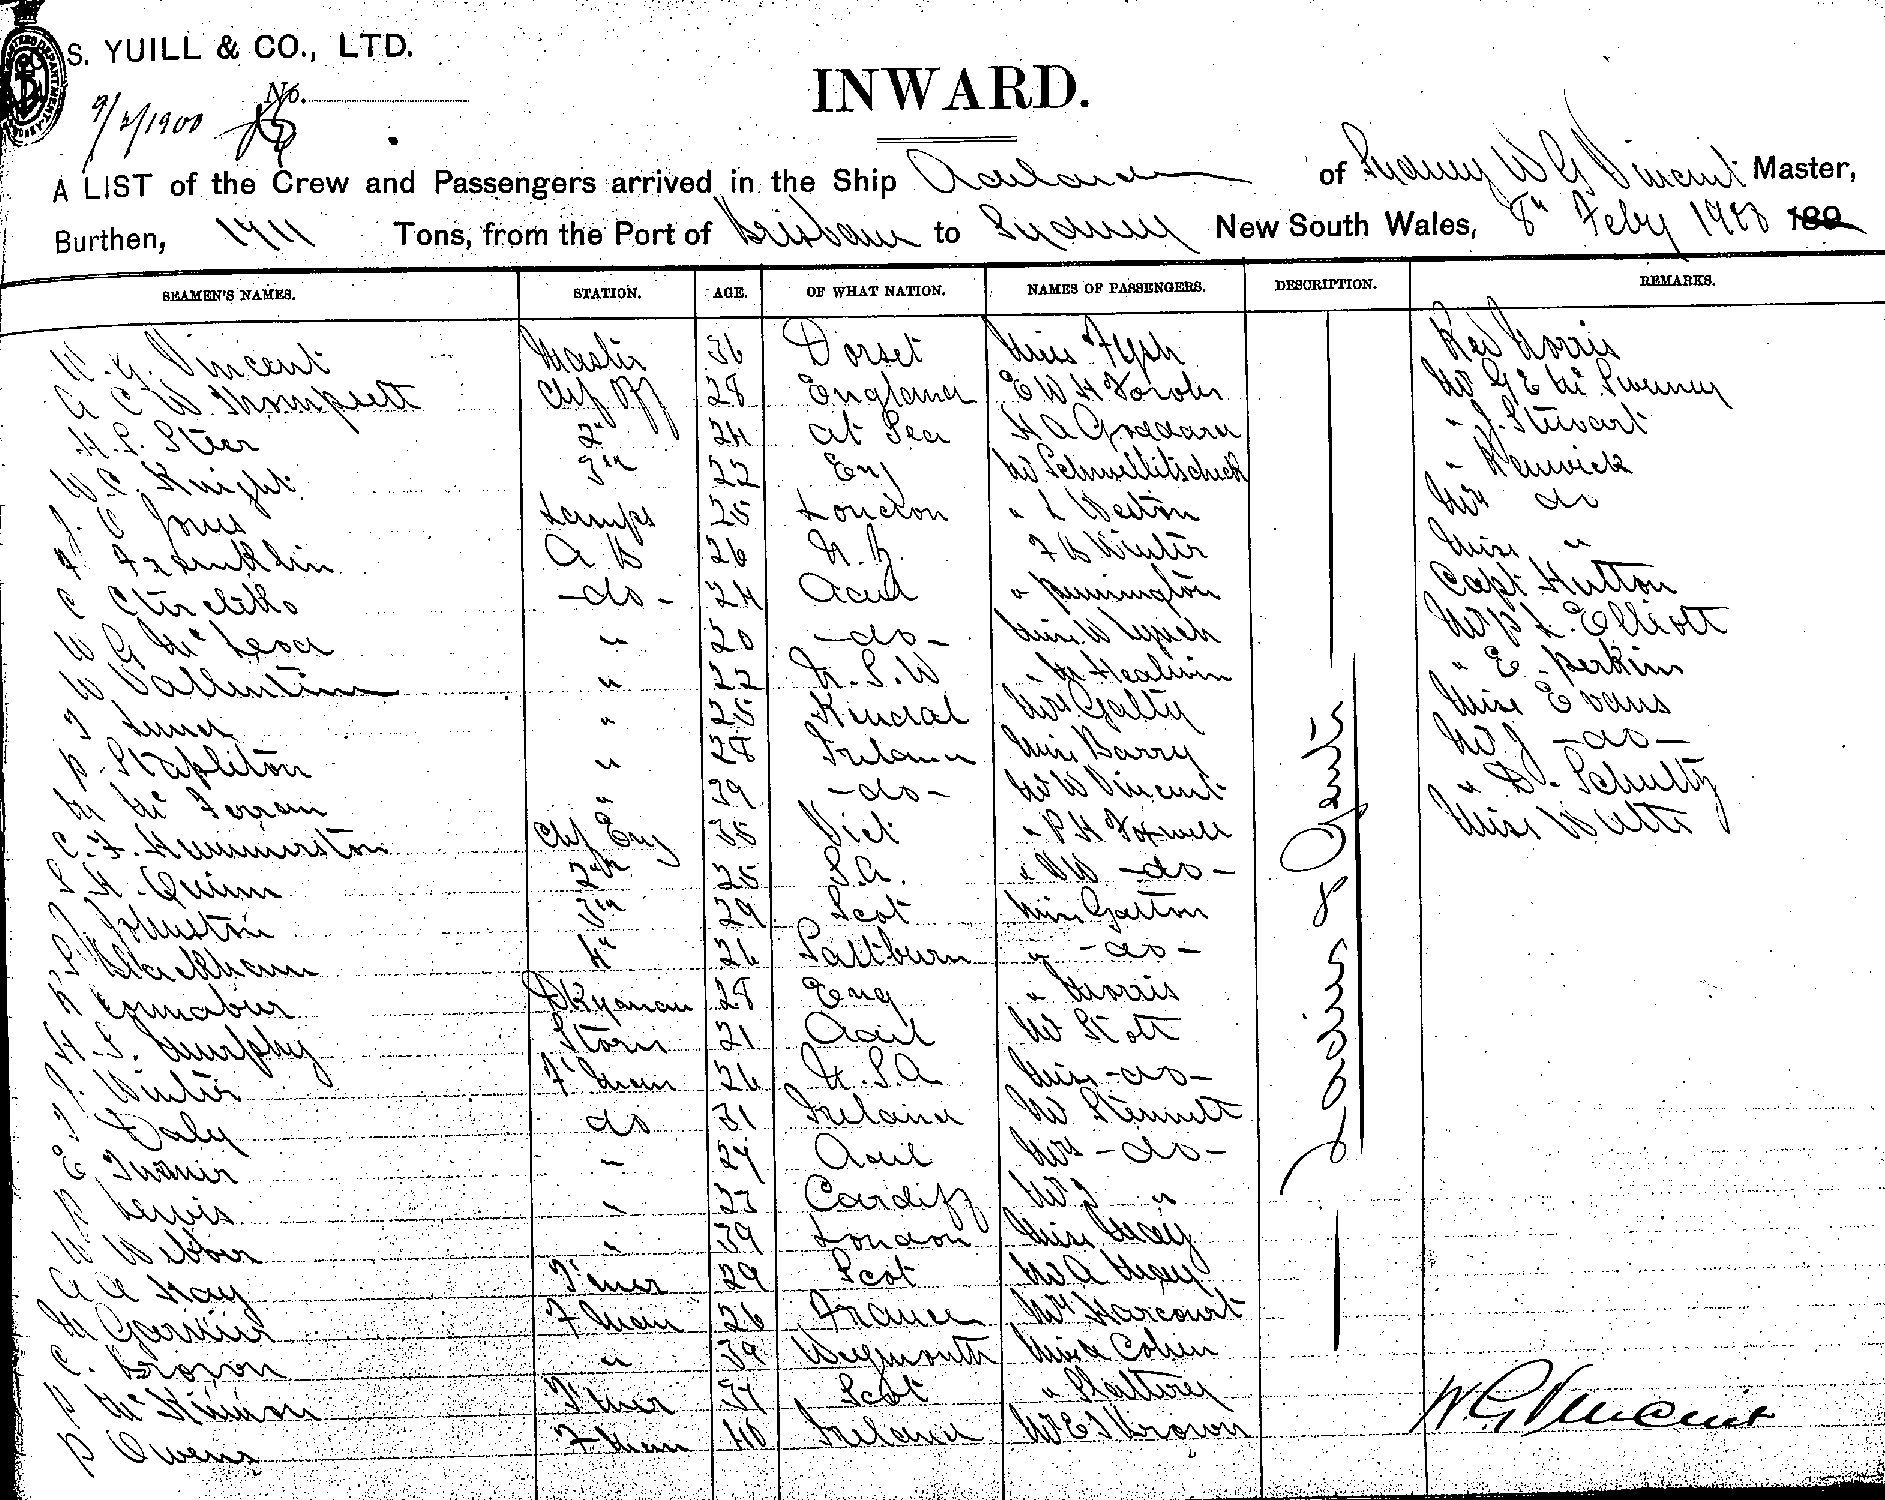 S. YUILL & CO., LTD.
No.
9/2/1900
INWARD.
A LIST of the Crew and Passengers arrived in the Ship of Sydney W G Vincent Master,
Burthen, 1711 Tons, from the Port of Brisbane to Sydney New South Wales, 8th Feby 1900 189
SEAMEN'S NAMES. STATION. AGE. OF WHAT NATION. NAMES OF PASSENGERS. DESCRIPTION. REMARKS.
W. G. Vincent Master 36 Dorset Miss Fysh Rev Norris
A C W Thompsett Chf Off 28 England E W H Fowler Mr G E McSweeney
H. S. Steer 2nd 24 at Sea H A Goddard " J. Stewart
W C. Knight 3rd 22 Eng Mr " Renwick
J. O Jones Lamps 25 London " L Weston Mrs do
F Franklin A B 26 N. Z. F B Winter Miss "
C -do- 24 Aael " Pennington Capt Hutton
W G McLeod " 20 -do- Miss W Lynch Mr P L. Elliott
W Vallentine " 22 N. S. W " M " E. Perkins
T " 25 Kendal Mrs Galty Miss Evans
P. Stapleton " 28 Ireland Miss Barry Mr J -do-
M McFerran " 39 -do- Mr W Vincent " D. Schultz
C. F. Hummerston Chf Eng 35 Vict " P H Foxwell Miss Watts
S H. Quinn 2nd 25 S. A. " W -do-
J Johnston 3rd 29 Scot Miss Garton
S Blackham 4" 26 Saltburn " -do-
H Dkyman 28 Eng " Morris
H. S. Murphy Stores 21 Aael Mr Stott
J. Winter F'man 26 U. S. A Miss -do-
T Daly do 31 Ireland Mr Stennett
E Turner " 27 Aael Mrs -do-
P Lewis " 23 Cardiff Mr J "
W Webber " 39 London Miss May
A A Hay T'mer 29 Scot Mr A May
M F'man 26 France Mrs Harcourt
C. Brown " 39 Weymouth Miss Cohen
P McKinnon T'mer 37 Scot " Slattery
P Owens F'man 40 Ireland Mr E J Brown
Ladies & Gents
W G Vincent